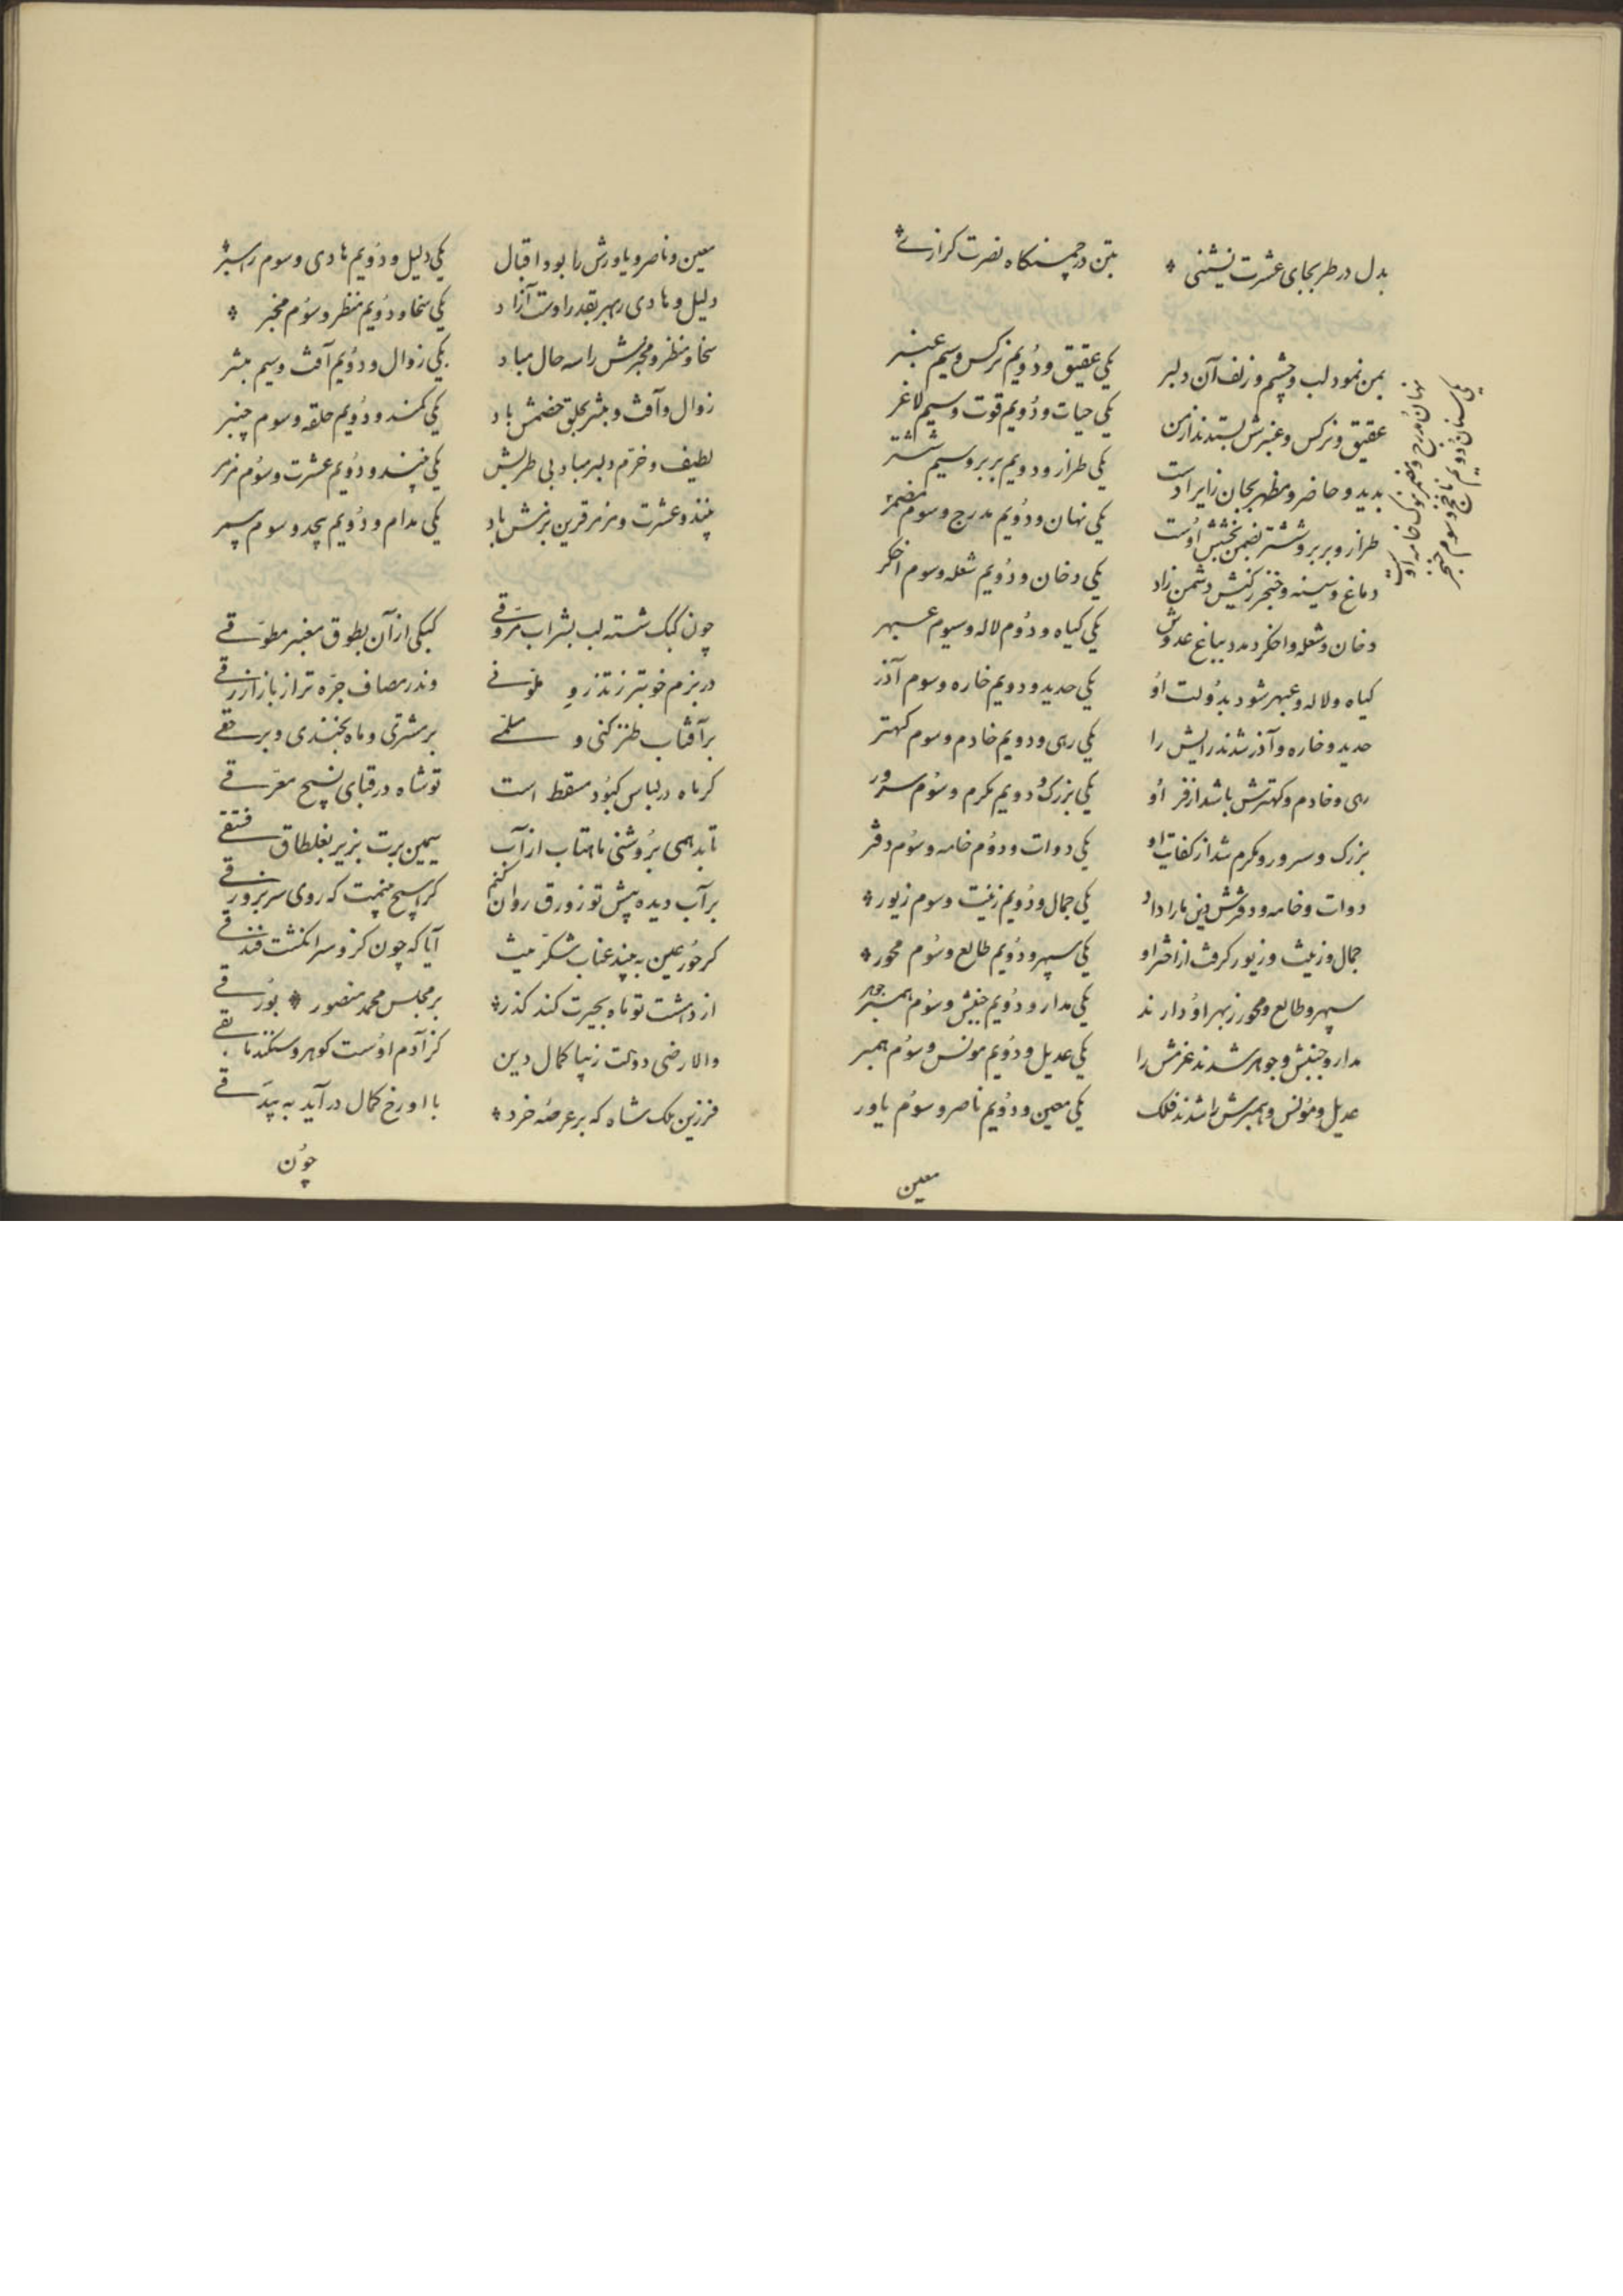 بدل در طربجای عشرت نشینی
بتن در چمنکاه نصرت کرازی
بمن نمود لب و چشم و زلف آن دلبر
یکی عقیق و دُویم نرکس و سیم عنبر
عقیق و نرکس و عنبرش بستدند از من
یکی حیات و دُویم قوت و سیم لاغر
بدید و حاضر و مظهر بجان زایر اوست
یکی طراز و دویم بربر و سیم ششتر
طراز و بربر و ششتر بضمن بخشش اوست
یکی نهان و دُویم مدرج و سوم مضمر
نهان و مدرج و مضمر نوک خامه اوست
یکی سنان دُویم ناچخ و سوم خنجر
دماغ و سینه و خنجر ز کینش دشمن زاد
یکی دخان و دُویم شعله و سوم اخکر
دخان و شعله و اخکر دمد بباغ عدوش
یکی کیاه و دُوم لاله و سیوم عبهر
کیاه و لاله و عبهر شود بدُولت اوُ
یکی حدید و دویم خاره و سوم آذر
حدید و خاره و آذر شدند رایش را
یکی رهی و دویم خادم و سوم کهتر
رهی و خادم و کهترش باشد از فر اوُ
یکی بزرک و دویم مکرم و سوُم سرور
بزرک و سرور و مکرم شد از کفایت او
یکی دوات و دوُم خامه و سوُم دفتر
دوات و خامه و دفترش دین مارا داد
یکی جمال و دُویم زینت و سوم زیور
جمال و زینت و زیور کرفت از اختر او
یکی سپهر و دُویم طالع و سوُم محور
سپهر و طالع و محور ز بهر اوُ دارند
یکی مدار و دُویم جنبش و سوُم جوهر
مدار و جنبش و جوهر شدند عزمش را
یکی عدیل و دُویم مونس و سوُم همبر
عدیل و موُنس و همبرش را شدند فلک
یکی معین و دُویم ناصر و سوُم یاور
معین
معین و ناصر و یاورش را بود اقبال
یکی دلیل و دُویم هادی و سوم رهبر
دلیل و هادی و رهبر بقدر اوست آزاد
یکی سخا و دُویم منظر و سوُم مخبر
سخا و منظر و مخبرش را سه حال مباد
یکی زوال و دوُیم آفت و سیم مبشر
زوال و آفت و مبشر بحلق خصمش باد
یکی کمند و دُویم حلقه و سوم چنبر
لطیف و خرّم و دلبر مباد بی طربش
یکی پند و دُویم عشرت و سوُم مزمر
پند و عشرت و مزمر قرین بزمش باد
یکی مدام و دُویم بیحد و سوم بیمر
چون کبک شسته لب بشراب مروّقی
کبکی از آن بطوق معنبر مطوّقی
در بزم خوبتر ز تذرو ملونی
وندر مصاف جرّه تر از باز ازرقی
بر آفتاب طنز کنی و مسلمی
بر مشتری و ماه بخندی و برحقی
کر ماه در لباس کبُود مسقط است
تو شاه در قبای نسیج معرّقی
تابد همی برُوشنی ماهتاب از آب
سیمین برت بزیر بغلطاق فستقی
بر آب دیده پیش تو زورق روان کنم
کر حوُر عین به بیند عناب شکرینت
آیا که چون کزد سر انکشت فندقی
از دشت تو ماه بحیرت کند کذر
بر مجلس محمد منصور
والا رضی دولت زیبا کمال دین
کز آدم اوُست کوهر و سکندنا بقی
فرزین ملک شاه که بر عرصهٔ خرد
با او رخ کمال در آید به بیدقی
چوُن